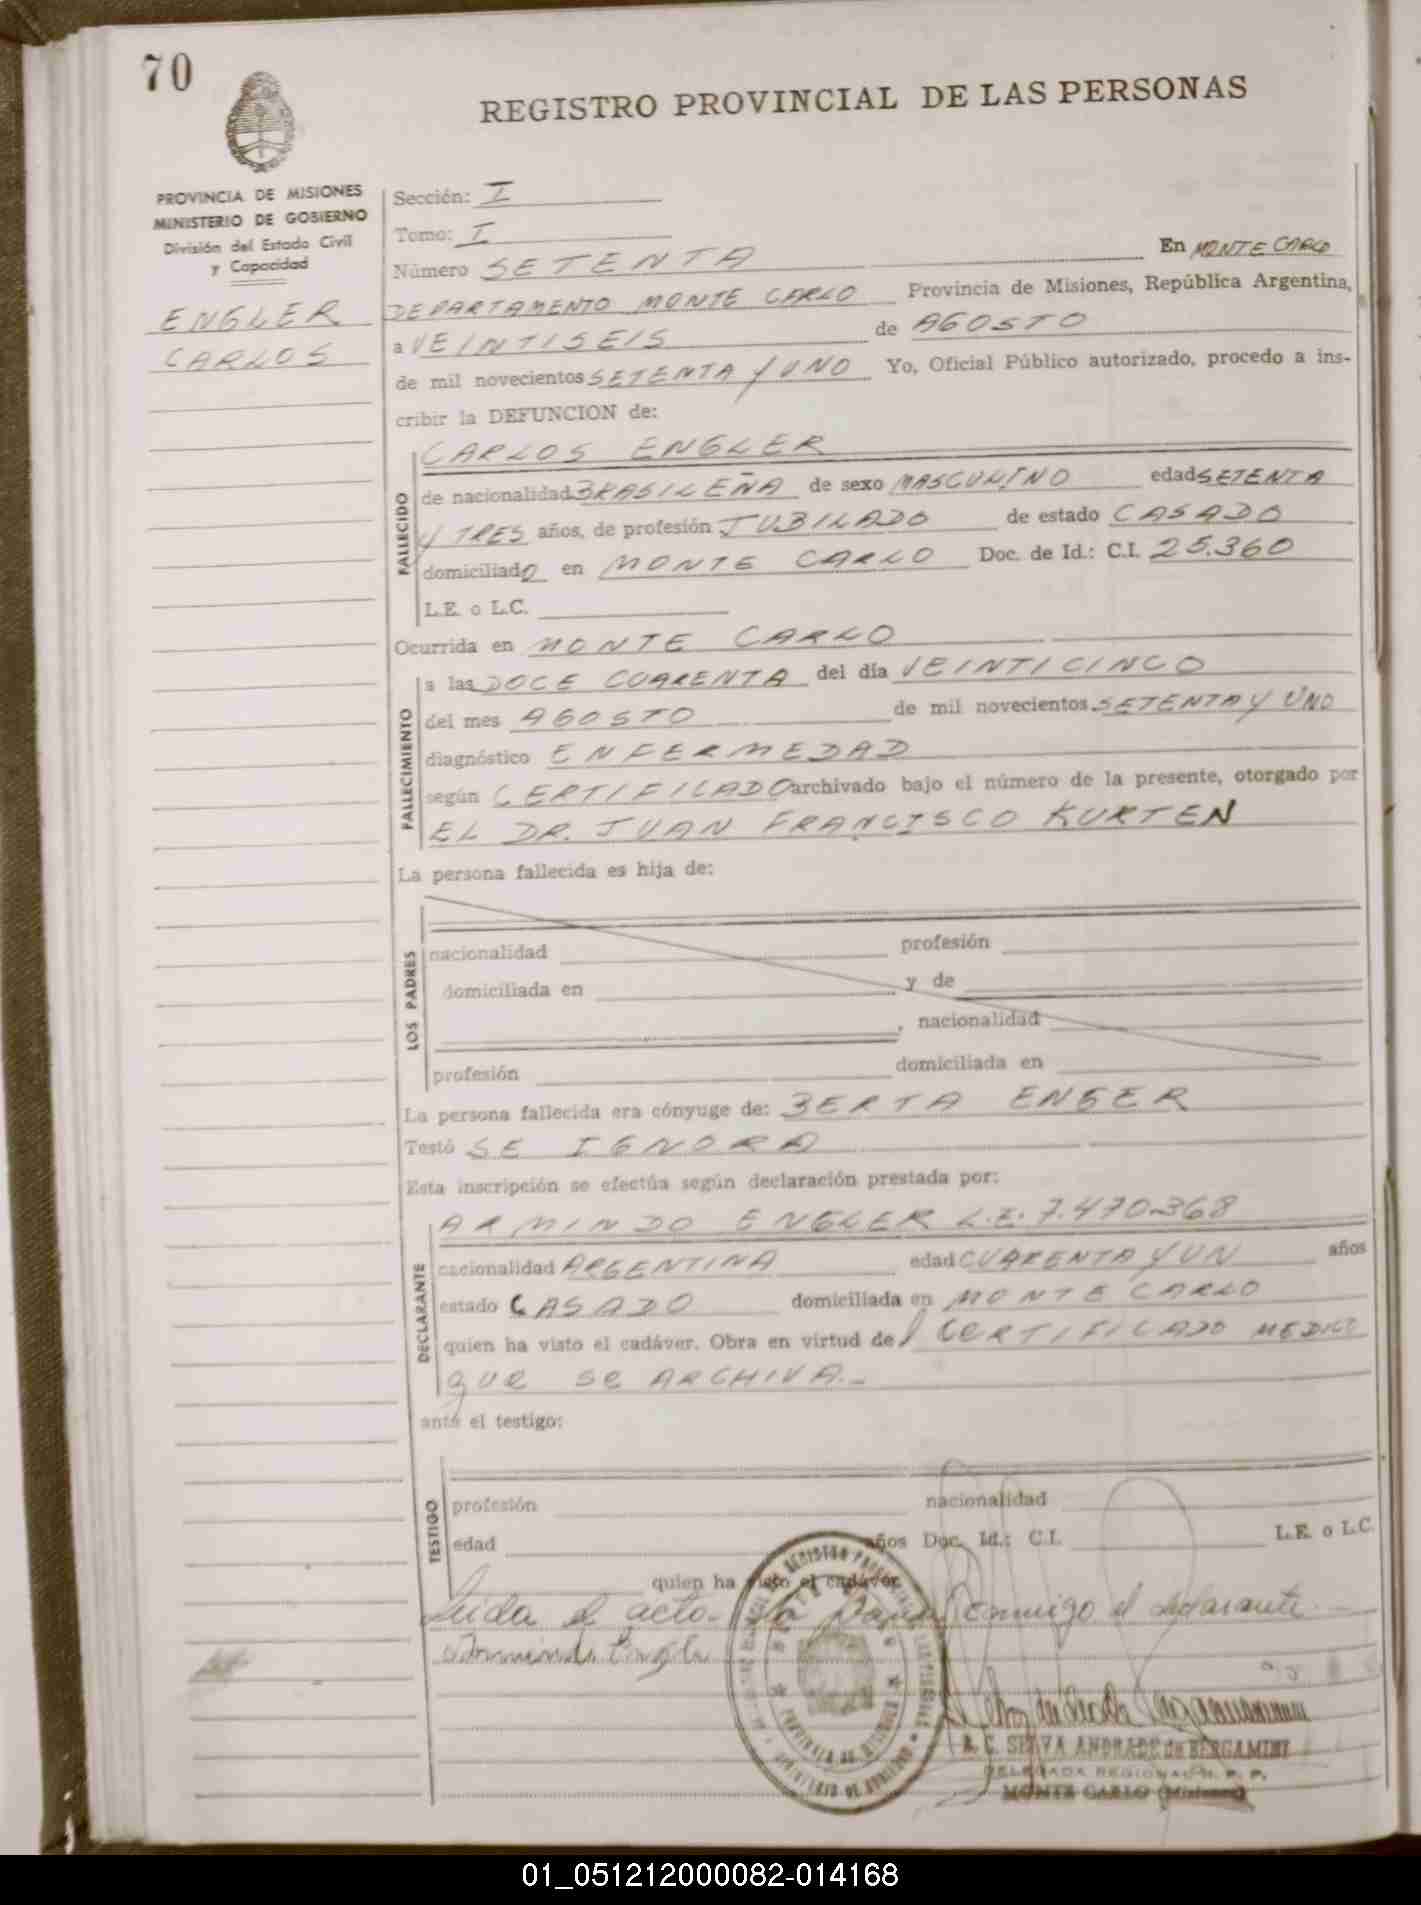 70
REGISTRO PROVINCIAL DE LAS PERSONAS
PROVINCIA DE MISIONES
MINISTERIO DE GOBIERNO
División del Estado Civil
y Capacidad
ENGLER
CARLOS
Sección: I
Tomo: I
Número SETENTA En MONTE CARLO
DEPARTAMENTO MONTE CARLO Provincia de Misiones, República Argentina,
a VEINTISEIS de AGOSTO
de mil novecientos SETENTA Y UNO Yo, Oficial Público autorizado, procedo a ins-
cribir la DEFUNCION de:
FALLECIDO
CARLOS ENGLER
de nacionalidad BRASILEÑA de sexo MASCULINO edad SETENTA
Y TRES años, de profesión JUBILADO de estado CASADO
domiciliado en MONTE CARLO Doc. de Id.: C.I. 25.360
L.E. o L.C.
Ocurrida en MONTE CARLO
FALLECIMIENTO
a las DOCE CUARENTA del día VEINTICINCO
del mes AGOSTO de mil novecientos SETENTA Y UNO
diagnóstico ENFERMEDAD
según CERTIFICADO archivado bajo el número de la presente, otorgado por
EL DR. JUAN FRANCISCO KURTEN
La persona fallecida es hija de:
LOS PADRES
nacionalidad profesión
domiciliada en y de
, nacionalidad
profesión domiciliada en
La persona fallecida era cónyuge de: BERTA ENGER
Testó SE IGNORA
Esta inscripción se efectúa según declaración prestada por:
DECLARANTE
ARMINDO ENGLER L.E. 7.470.368
nacionalidad ARGENTINA edad CUARENTA Y UN años
estado CASADO domiciliada en MONTE CARLO
quien ha visto el cadáver. Obra en virtud de CERTIFICADO MEDICO
QUE SE ARCHIVA.-
ante el testigo:
TESTIGO
profesión nacionalidad
edad años Doc. Id.: C.I. L.E. o L.C.
quien ha visto el cadáver
Leida el acto conmigo el declarante
Armindo Engler
A. C. SELVA ANDRADE de BERGAMINI
DELEGADA REGIONAL R. P. P.
MONTE CARLO (Misiones)
PROVINCIA DE MISIONES
MINISTERIO DE GOBIERNO
01_051212000082-014168